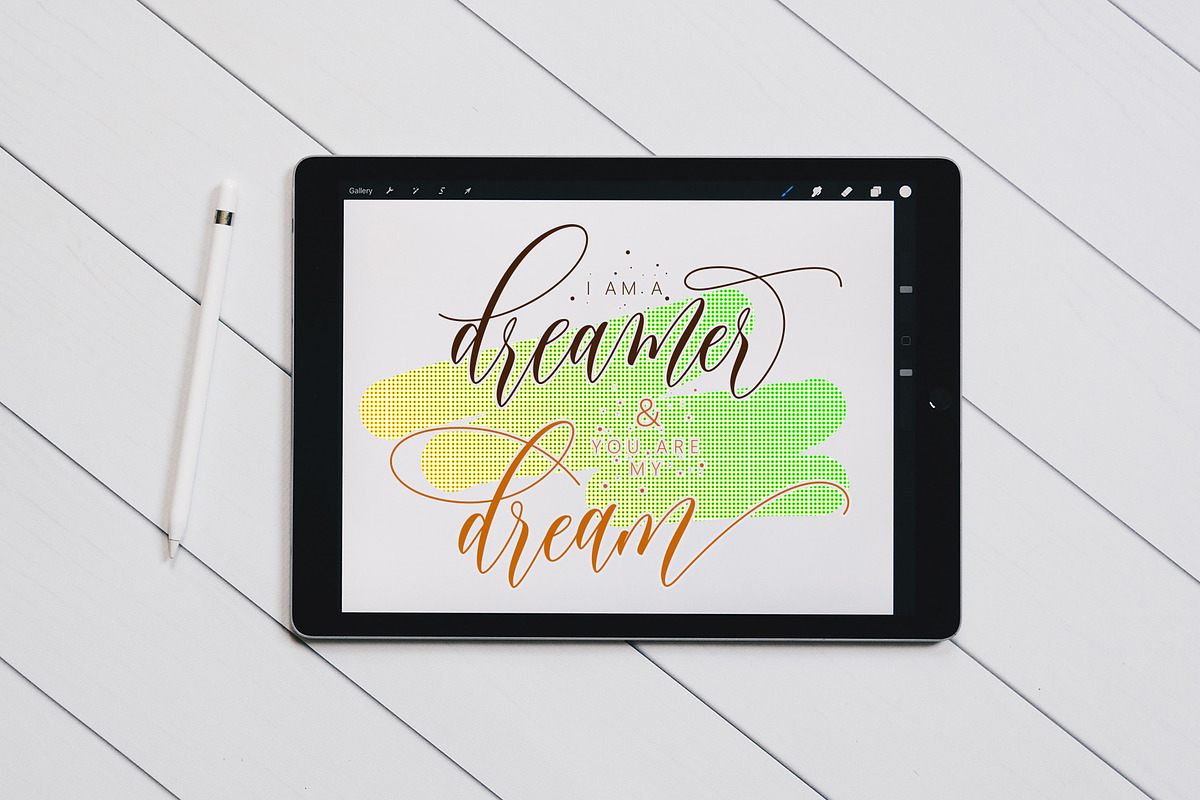 Gallery
I AM A
dreamer
&
YOU ARE
MY
dream